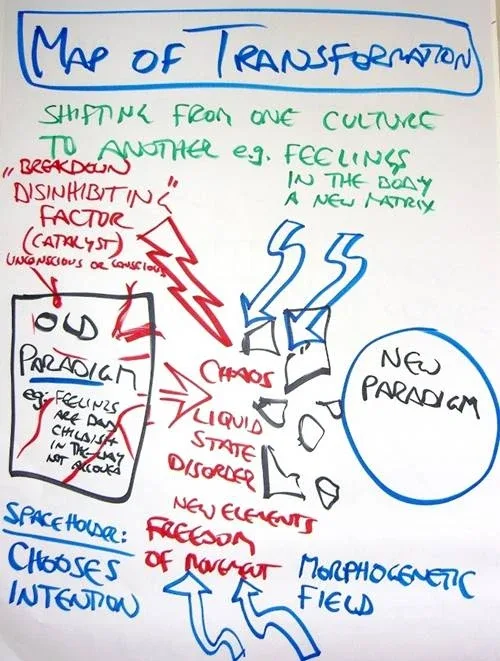 MAP OF TRANSFORMATION
SHIFTING FROM ONE CULTURE
TO ANOTHER e.g. FEELINGS
IN THE BODY
A NEW MATRIX
"BREAKDOWN
DISINHIBITING"
FACTOR
(CATALYST)
UNCONSCIOUS OR CONSCIOUS
OLD
PARADIGM
eg: FEELINGS
ARE BAD
CHILDISH
IN THE WAY
NOT ALLOWED
CHAOS
LIQUID
STATE
DISORDER
NEW ELEMENTS
FREEDOM
OF MOVEMENT
NEW
PARADIGM
SPACEHOLDER:
CHOOSES
INTENTION
MORPHOGENETIC
FIELD